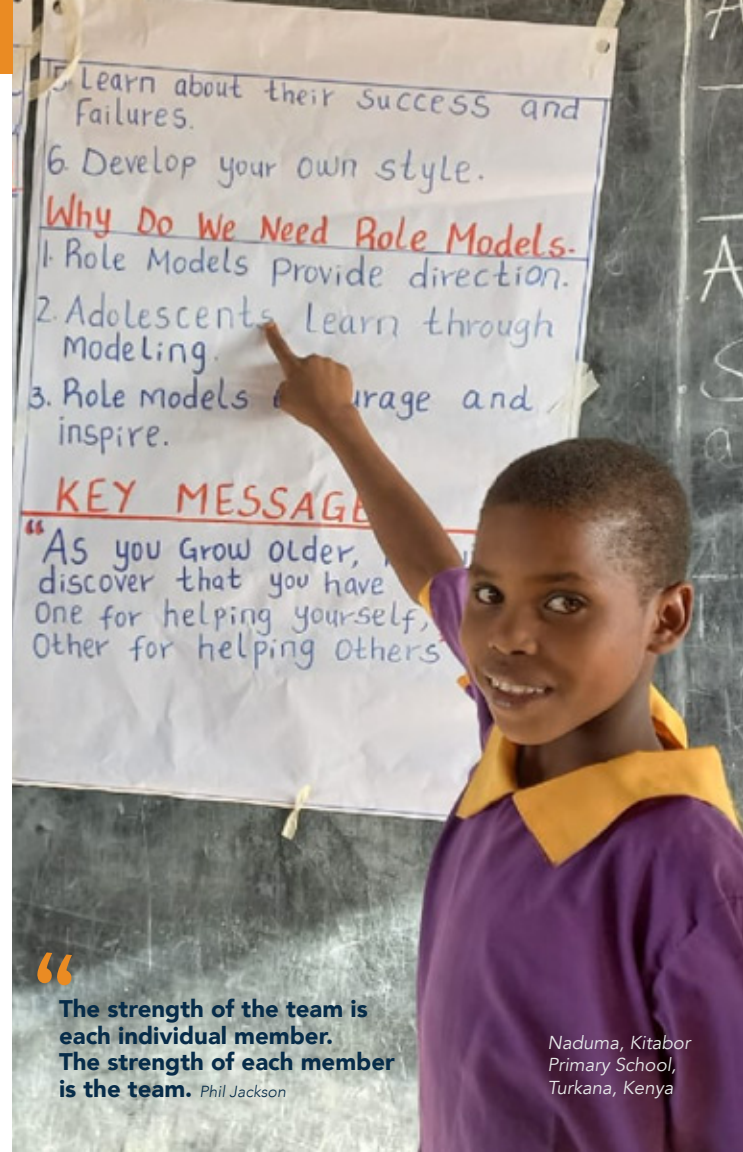 5. Learn about their Success and
Failures.
6. Develop your own style.
Why Do We Need Role Models.
1. Role Models Provide direction.
2. Adolescents learn through
Modeling.
3. Role Models and
inspire.
KEY MESSAGE
“As you Grow older,
discover that you have
One for helping yourself,
Other for helping Others
“
The strength of the team is
each individual member.
The strength of each member
is the team. Phil Jackson
Naduma, Kitabor
Primary School,
Turkana, Kenya